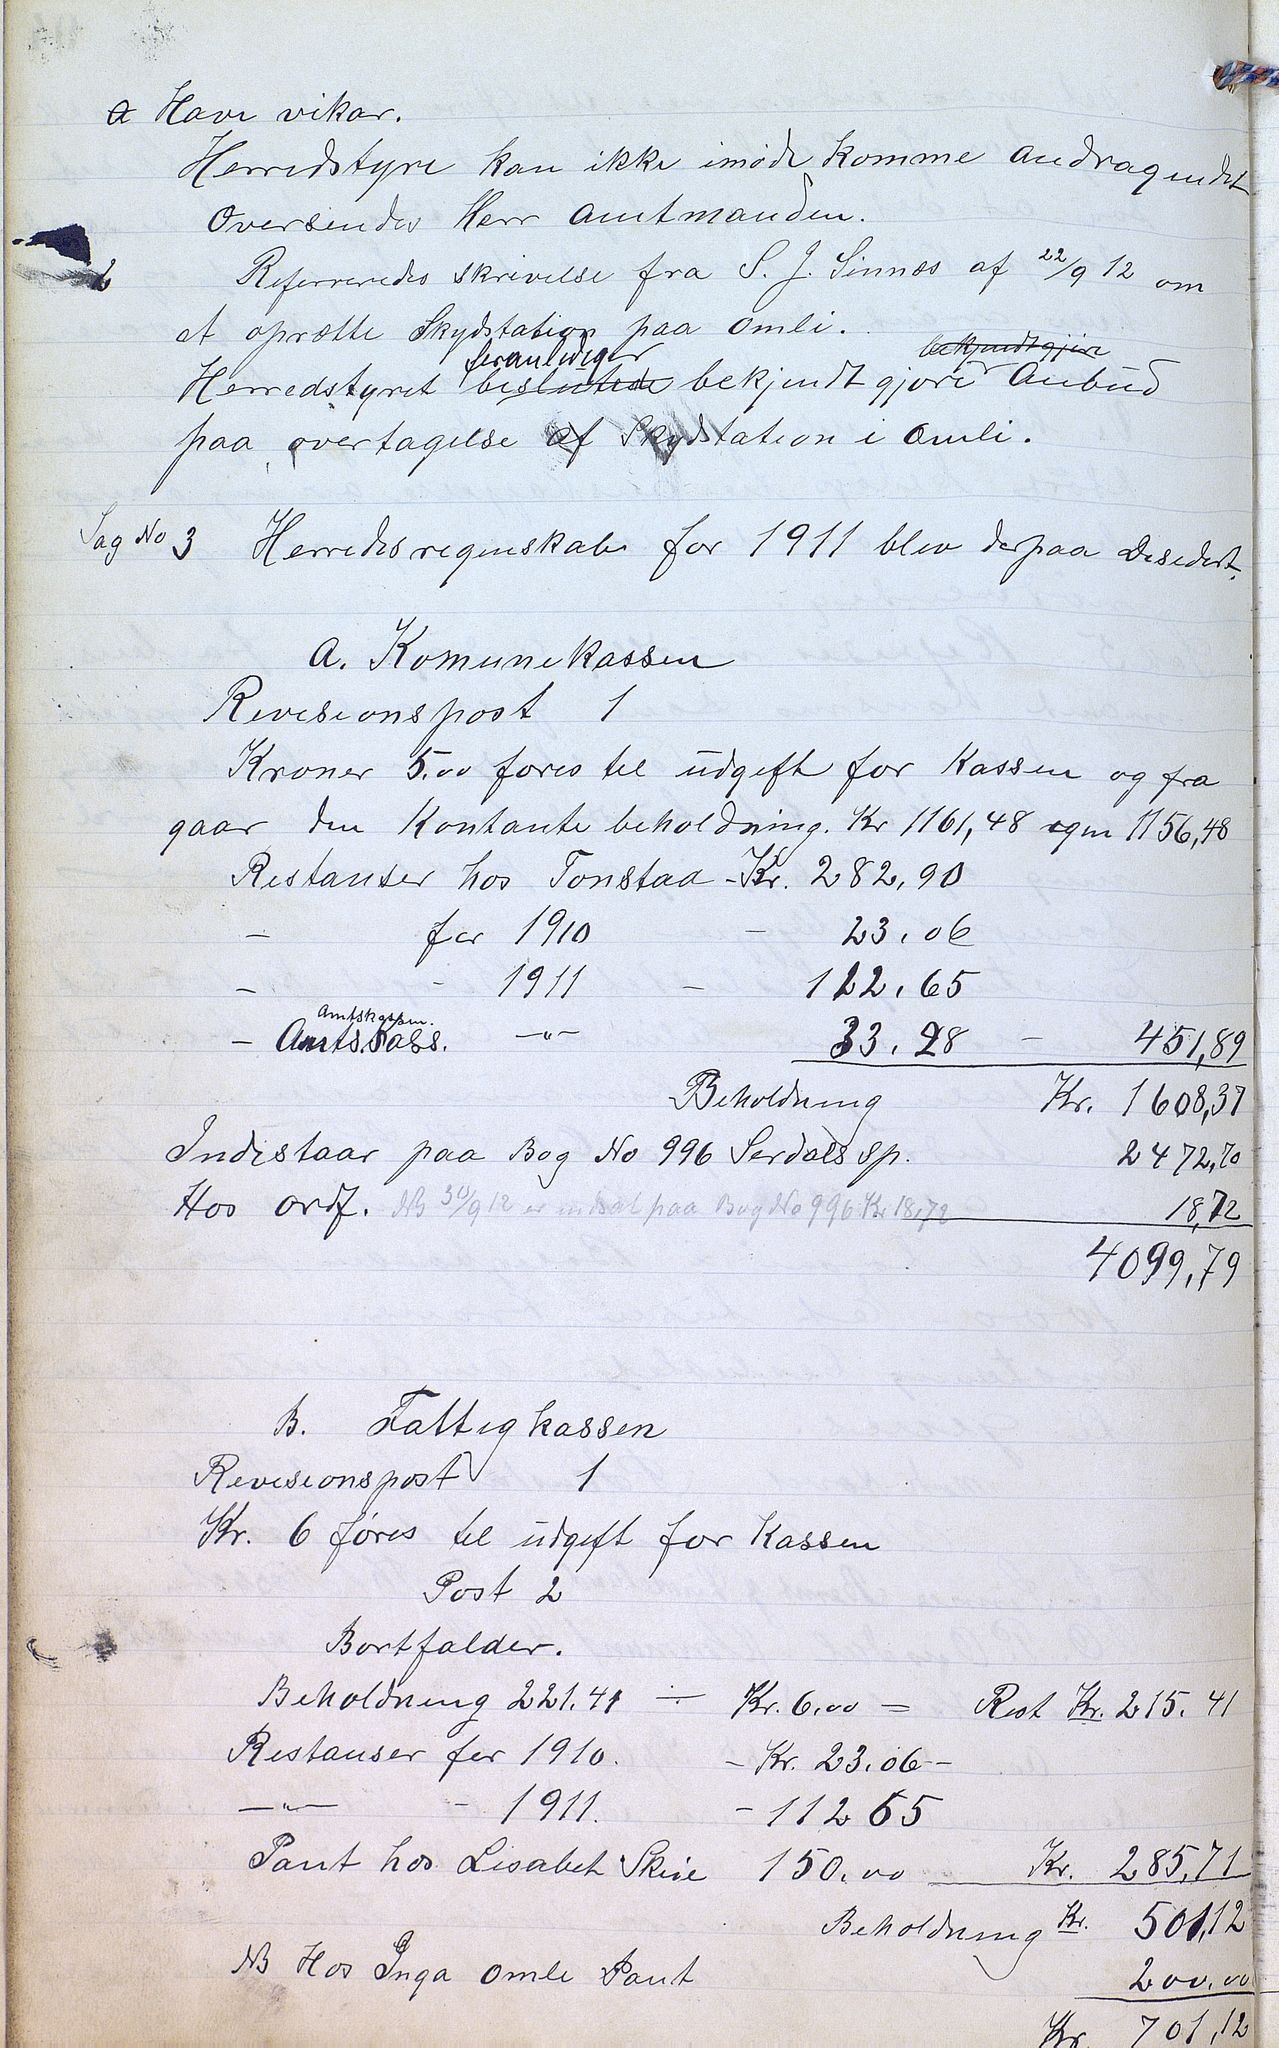 a Have vikar.
Herredstyre kan ikke imøde komme andragendet
Oversendes Herr Amtmanden.
b Refereredes skrivelse fra S. J. Sinnes af 22/9 12 om
at oprætte Skydstation paa Omli.
foranlediger bekjendtgjøre
Herredstyret besluttede bekjendt gjøre Anbud
paa overtagelse af Skydstation i Omli.
Sag No 3 Herredsregnskabe for 1911 blev derpaa Desedert.
A. Komunekassen
Revisionspost 1
Kroner 5.00 føres til udgift for Kassen og fra
gaar den Kontante beholdning. Kr 1161,48 igen 1156,48
Restanser hos Tonstad - Kr. 282,90
- for 1910 - 23.06
- - 1911 - 122.65
Amtskassen.
- Amts.Kass. -"- 33.28 - 451,89
Beholdning Kr. 1608,37
Indestaar paa Bog No 996 Serdals sp. 2472,70
Hos Ordf. NB 30/9 12 er indsat paa Bog No 996 Kr 18,72 18,72
4099,79
B. Fattigkassen
Revisionspost 1
Kr. 6 føres til udgift for Kassen
Post 2
Bortfalder.
Beholdning 221.41 ÷ Kr. 6.00 = Rest Kr. 215.41
Restanser for 1910. - Kr. 23.06 -
-"- - 1911. - 112 65
Pant hos Lisabet Skeie 150.00 Kr. 285,71
Beholdning Kr. 501,12
NB Hos Inga Omli Pant 200.00
Kr. 701,12